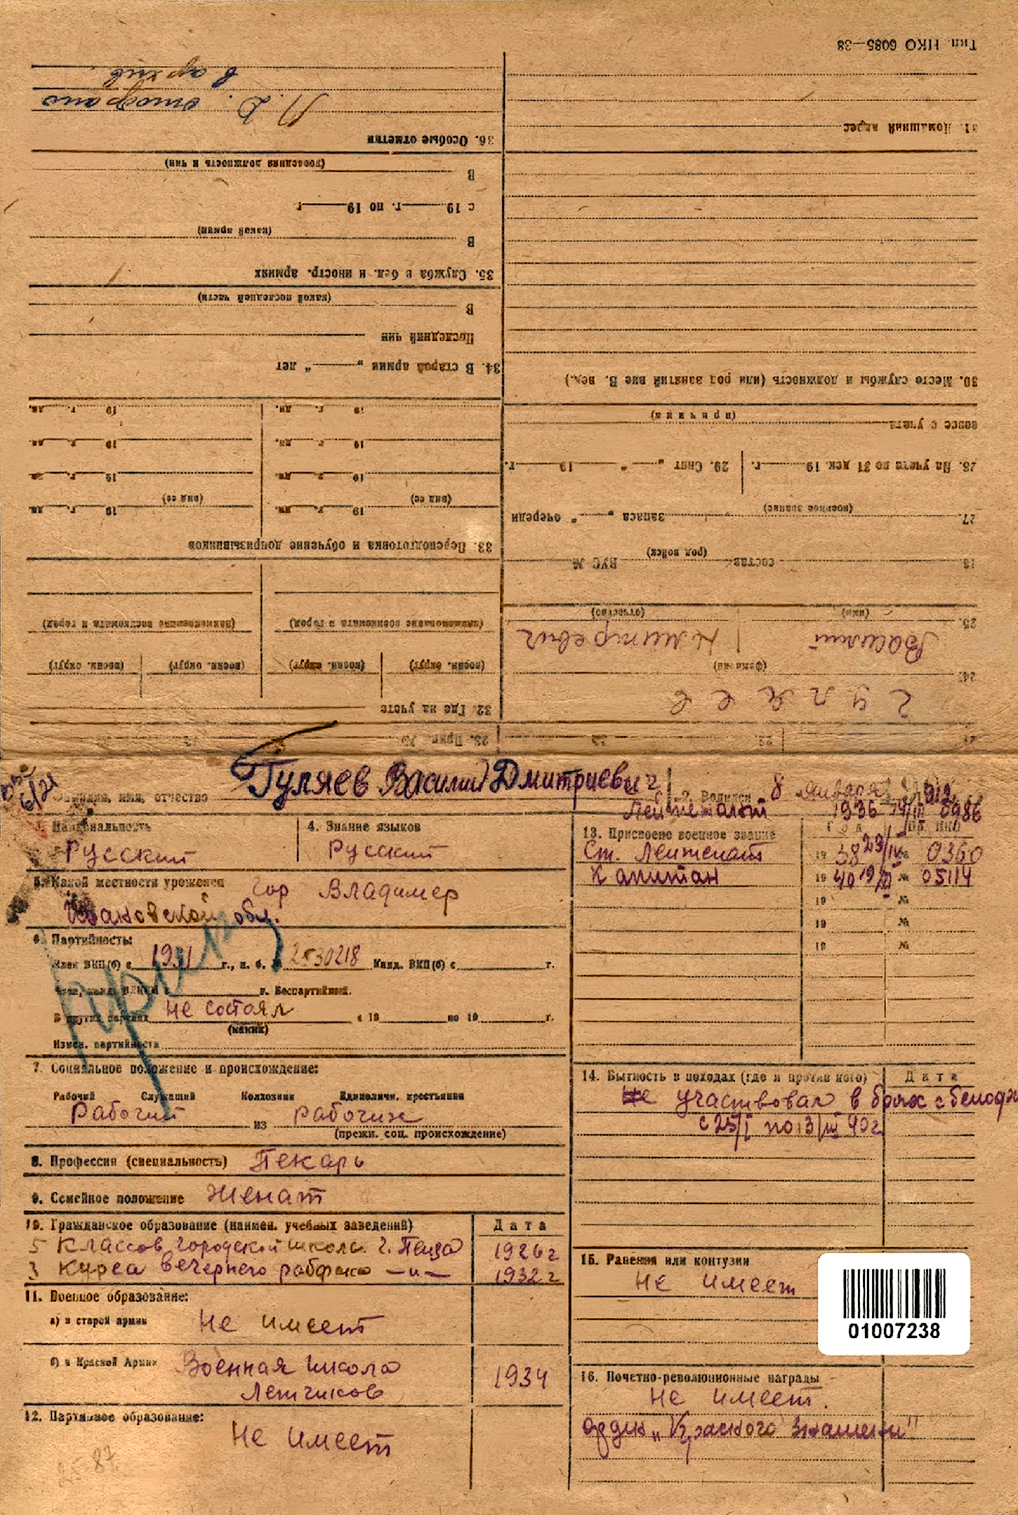 Тип. НКО 6085—38
31. Домашний адрес
30. Место службы и должность (или род занятий вне В. вед.)
вовсе с учета
(причина)
28. На учете по 31 дек. 19 г.
29. Снят „ “ 19 г.
27.
(военное звание)
запаса „ “ очереди
состав
(род войск)
ВУС №
25.
Василий
Дмитревич
(имя)
(отчество)
24.
Гуляев
(фамилия)
23. Прик. №
36. Особые отметки
Л. Д. отобрано
в архив.
35. Служба в бел. и иностр. армиях
В
(какой армии)
с 19 г. по 19 г.
В
(последняя должность и чин)
34. В старой армии „ “ лет
Последний чин
В
(какой последней части)
33. Переподготовка и обучение допризывников
(вид сс) 19 г. дн.
(вид сс) 19 г. дн.
19 г. дн.
19 г. дн.
19 г. дн.
19 г. дн.
19 г. дн.
19 г. дн.
32. Где на учете
(воен. округ)
(воен. округ)
(воен. округ)
(воен. округ)
(наименование военкомата и город)
(наименование военкомата и город)
Гуляев Василий Дмитриевич
фамилия, имя, отчество
2. Родился 8 января 1912
3. Национальность
Русский
4. Знание языков
Русский
5. Какой местности уроженец гор Владимер
Ивановской обл.
6. Партийность
Член ВКП(б) с 1931 г., п. б. № 2530218 Канд. ВКП(б) с г.
г. Беспартийный.
В других партиях не состоял с 19 по 19 г.
(каких)
Измен. партийности
7. Социальное положение и происхождение:
Рабочий Служащий Колхозник Единоличн. крестьянин
Рабочий из рабочих
(прежн. соц. происхождение)
8. Профессия (специальность) Пекарь
9. Семейное положение Женат
10. Гражданское образование (наимен. учебных заведений)
Дата
5 классов городской школы г. Пенза 1926 г
3 курса вечернего рабфака —и— 1932 г
11. Военное образование:
а) в старой армии Не имеет
б) в Красной Армии Военная школа
летчиков
1934
12. Партийное образование:
Не имеет
Лейтенант 1936 0986
13. Присвоено военное звание
Год
Ст. Лейтенант 1938 29/IV № 0360
Капитан 1940 19/III № 05114
19 №
19 №
19 №
14. Бытность в походах (где и против кого)
Дата
Не участвовал в боях с белоф
с 25/I по 13/III 40 г.
15. Ранения или контузии
Не имеет
01007238
16. Почетно-революционные награды
Не имеет.
орден „Красного знамени“